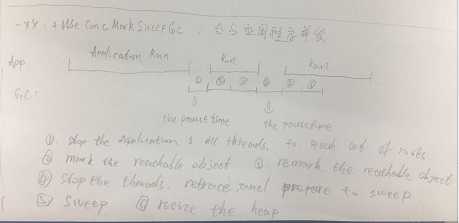 -XX:+Use Conc Mark Sweep GC, 它与应用程序并发
Application Run Run Run
App
① ② ③ ④ ⑤ ⑥
GC:
the pause time the pause time
①. stop the Application's all threads, to reach set of roots
② mark the reachable object ③ remark the reachable object
④ stop the threads. retrace and prepare to sweep
⑤ sweep ⑥ resize the heap